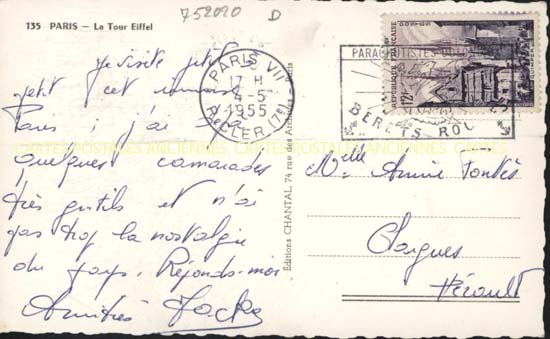 752020 D
135 PARIS — La Tour Eiffel
Je visite petit à
petit cet immense
Paris j'ai déjà
quelques camarades
très gentils et n'ai
pas trop la nostalgie
du pays. Réponds-moi
Amitiés Jacky
PARIS VII
17 H
4-5
1955
R. CLER (7e)
PARACHUTISTES COLONIAUX
BERETS ROUGES
REPUBLIQUE FRANÇAISE
POSTES
12F
Editions CHANTAL, 74 rue des Archives - Paris
Melle Annie Fontès
Clorgues
Hérault
CARTES POSTALES ANCIENNES CARTES POSTALES ANCIENNES CARTES POSTALES ANCIENNES CARTES